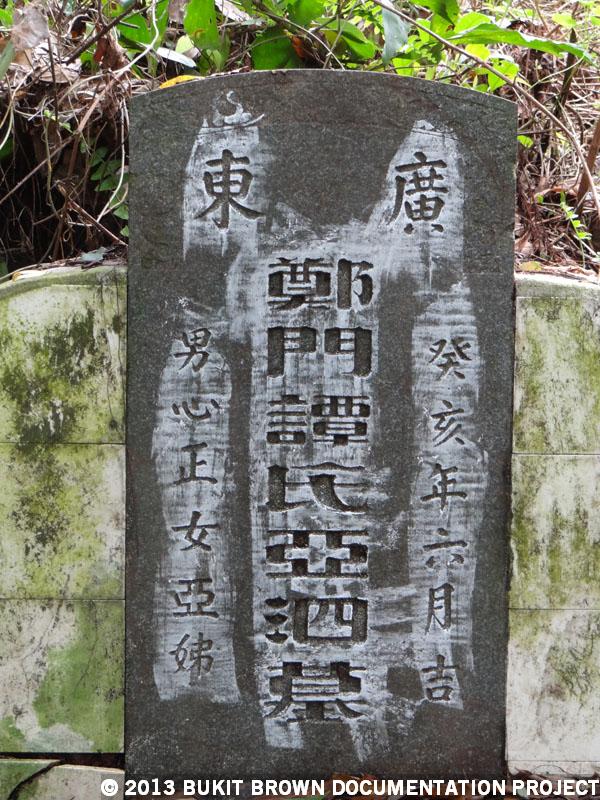 廣東
癸亥年六月吉
鄭門譚氏亞泗墓
男心正女亞娣
© 2013 BUKIT BROWN DOCUMENTATION PROJECT